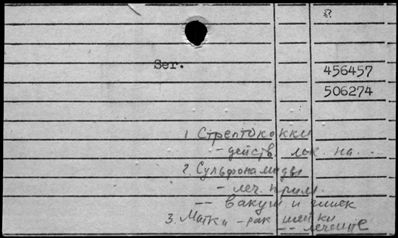 Ser.
456457
506274
1. Стрептококки
- действ. лек. на...
2. Сульфонамиды
- леч. прим.
-- вакцин и
3. Матки - рак шейки
-- лечение